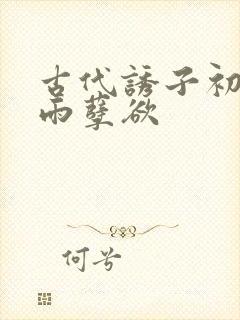 古代誘子初
雨孽欲
何兮